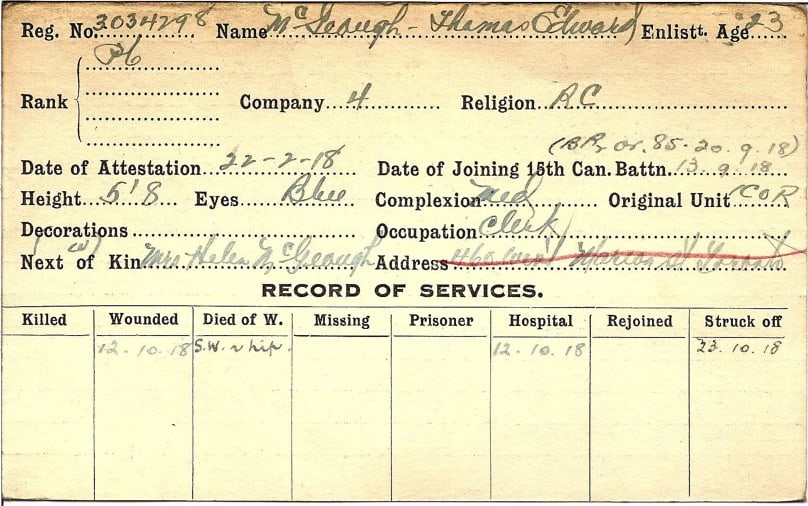 Reg. No. 3034298 Name McGeough - Thomas Edward Enlistt. Age 23
Rank Company 4 Religion R.C.
(B.P. Or. 85 - 20. 9. 18)
Date of Attestation 22-2-18 Date of Joining 15th Can. Battn. 13. 9. 18
Height 5'8 Eyes Blue Complexion Med Original Unit COR
Decorations Occupation Clerk
(W)
Next of Kin Mrs Helen McGeough Address 460 Marion St Toronto
RECORD OF SERVICES.
Killed Wounded Died of W. Missing Prisoner Hospital Rejoined Struck off
12. 10. 18 S.W. r hip. 12. 10. 18 23. 10. 18